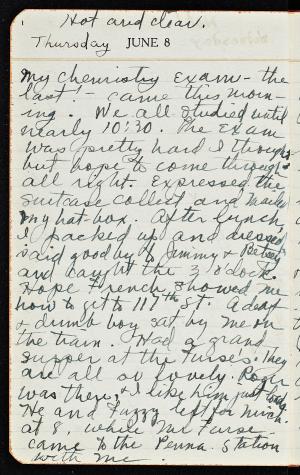 Hot and clear.
Thursday JUNE 8
My chemistry exam - the
last! - came this morn-
ing. We all studied until
nearly 10:30. The exam
was pretty hard I thought
but hope to come through
all right. Expressed the
suitcase collect and mailed
my hat-box. After lunch,
I packed up and dressed,
said good by to Jimmy & Betsey
and caught the 3 o'clock.
Hope French showed me
how to get to 117th St. A deaf
& dumb boy sat by me on
the train. Had a grand
supper at the Furses. They
are all so lovely. Roger
was there, & I like him just long.
He and Fuzzy left for Mich.
at 8, while Mr. Furse
came to the Penna. Station
with me.